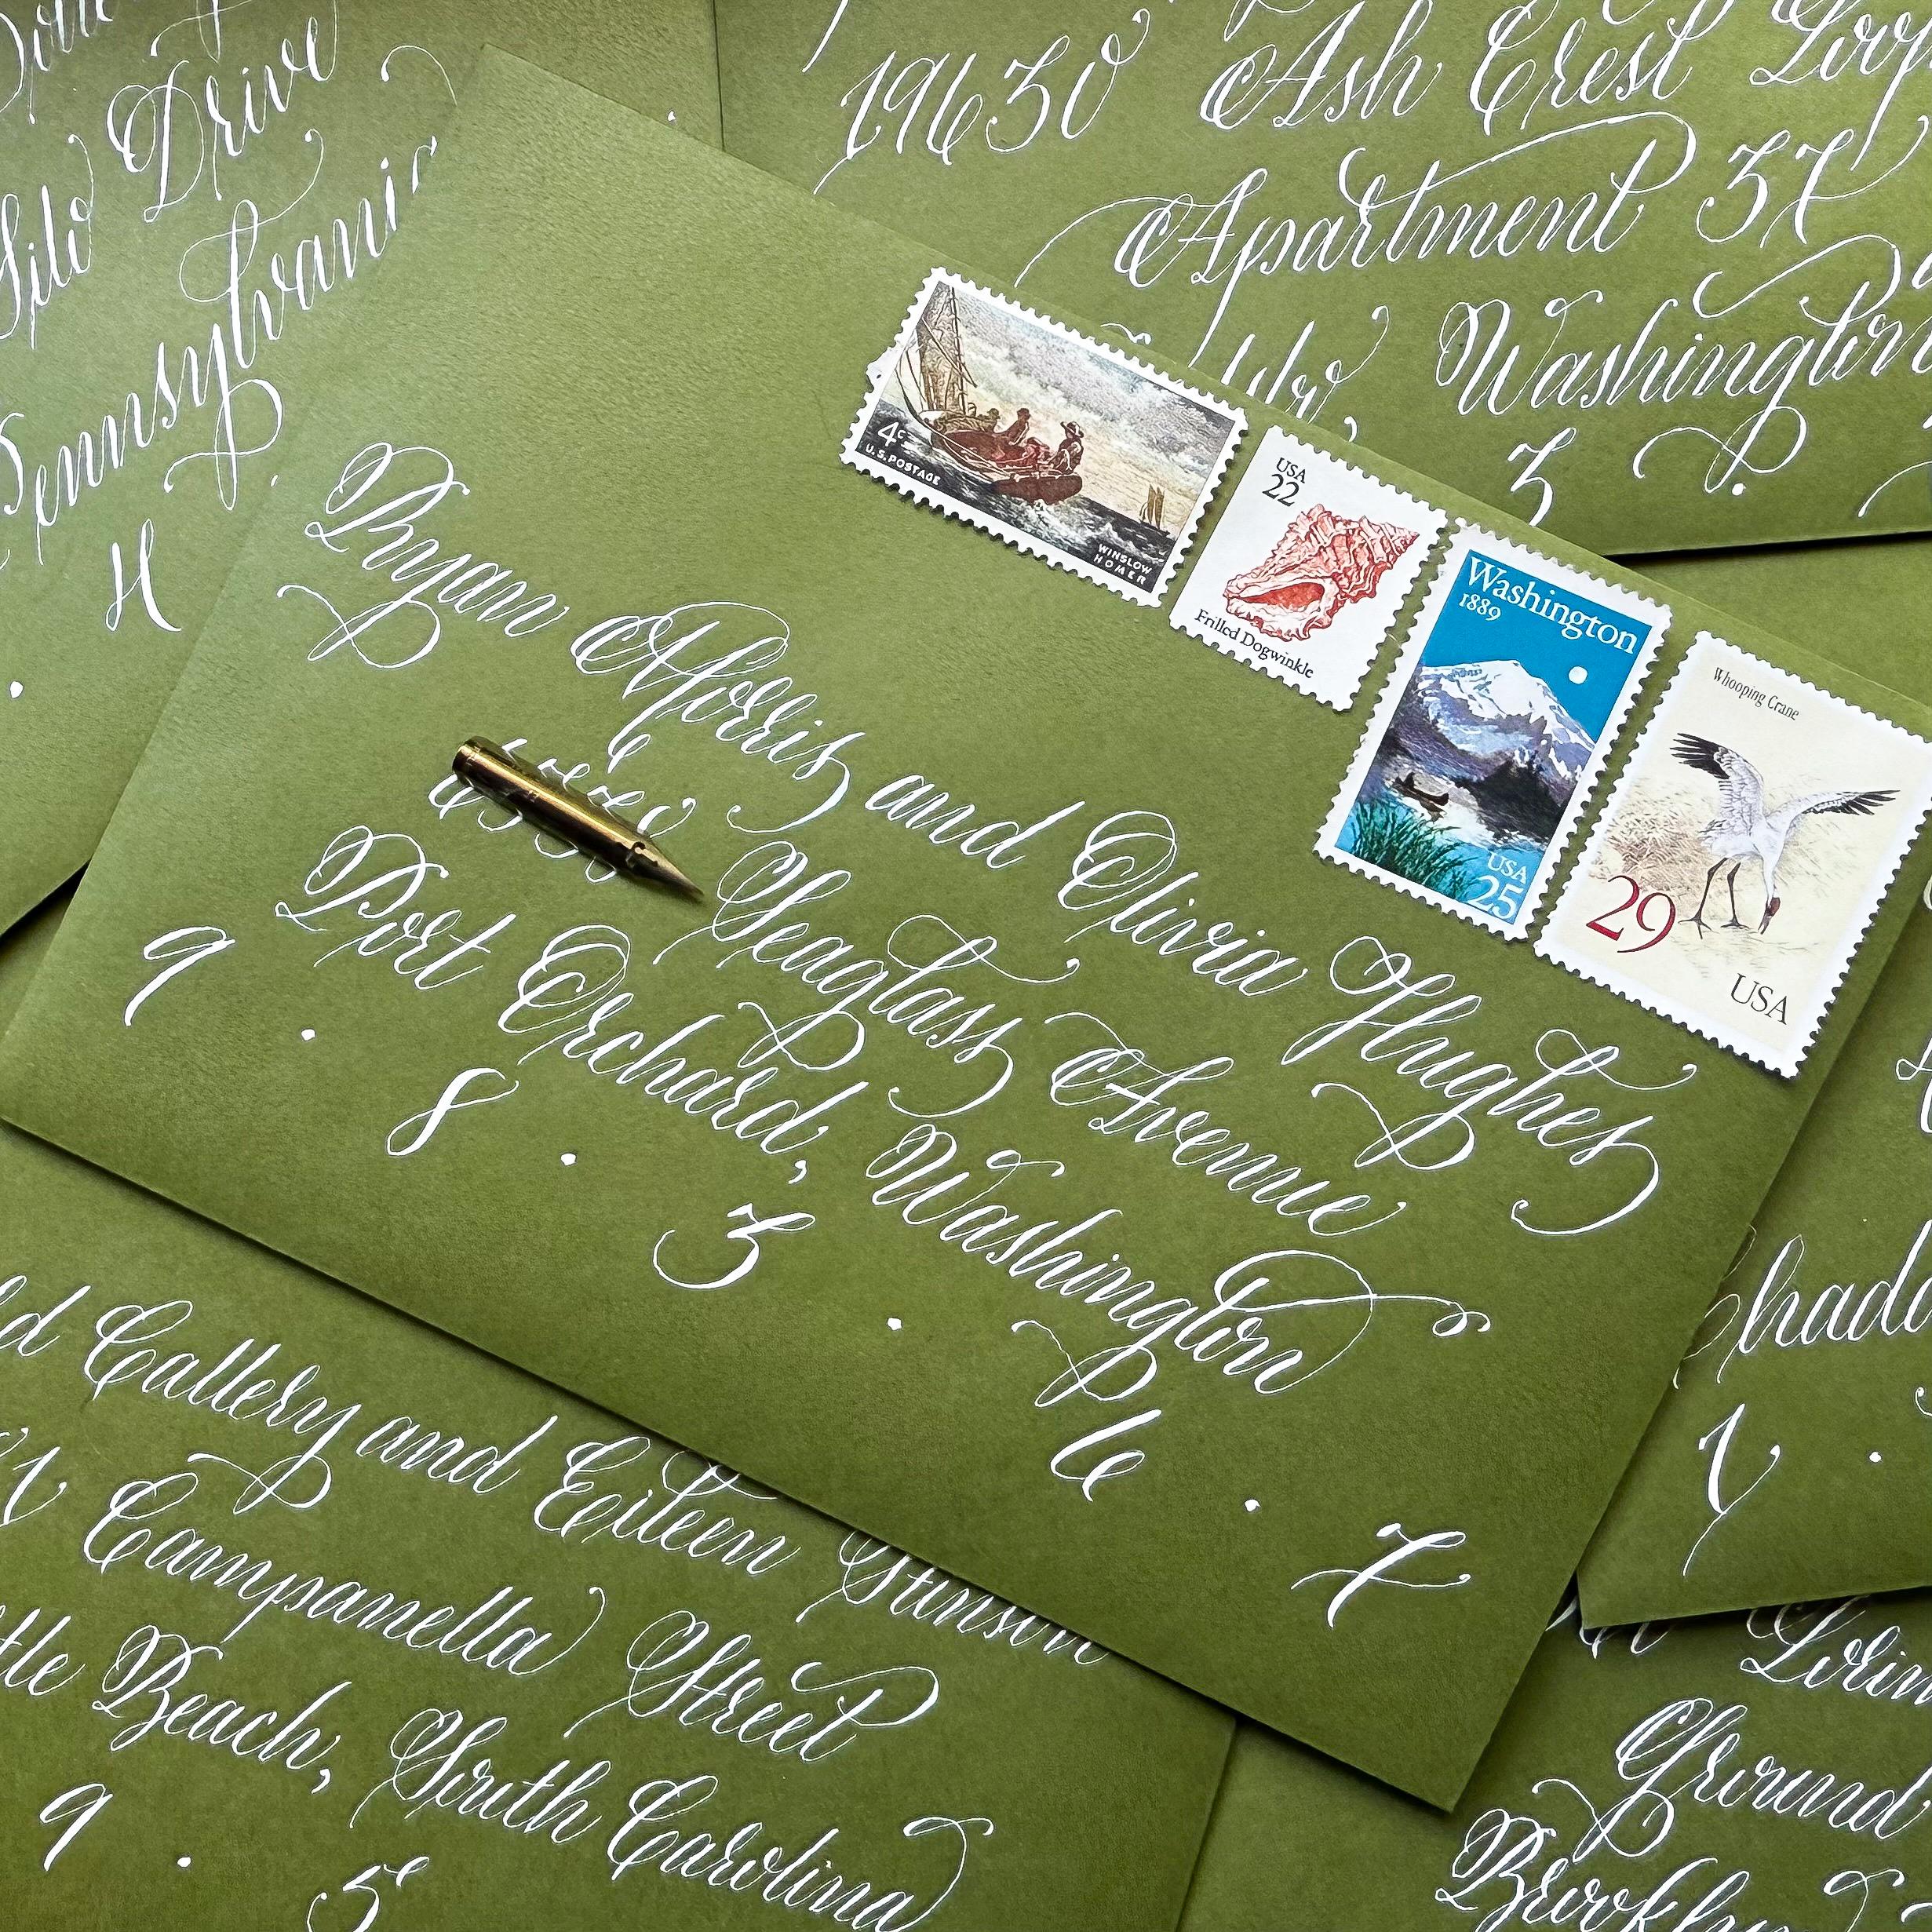 Drive
Silo
Pennsylvania
H
19630 Ash Crest Loop
Apartment 37
Washington
3
4c
U.S. POSTAGE
WINSLOW
HOMER
USA
22
Frilled Dogwinkle
Washington
1889
USA
25
Whooping Crane
29
USA
Ryan Morris and Olivia Hughes
Seaglass Avenue
Port Orchard, Washington
9 . 8 . 3 . 6 . 7
Callery and Eileen Stinson
Campanella Street
Beach, South Carolina
9 . 5
Ground